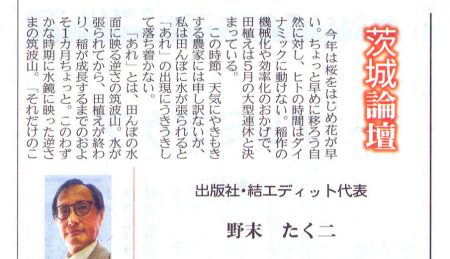 茨城論壇
出版社・結エディット代表
野末　たく二
今年は桜をはじめ花が早
い。ちょっと早めに移ろう自
然に対し、ヒトの時間はダイ
ナミックに動けない。稲作の
機械化や効率化のおかげで、
田植えは５月の大型連休と決
まっている。
この時節、天気にやきもき
する農家には申し訳ないが、
私は田んぼに水が張られると
「あれ」の出現にうきうきし
て落ち着かない。
「あれ」とは、田んぼの水
面に映る逆さの筑波山。水が
張られてから、田植えが終わ
り、稲が成長するまでのおよ
そ１カ月ちょっと。このわず
かな時期に水鏡に映った逆さ
まの筑波山。「それだけのこ